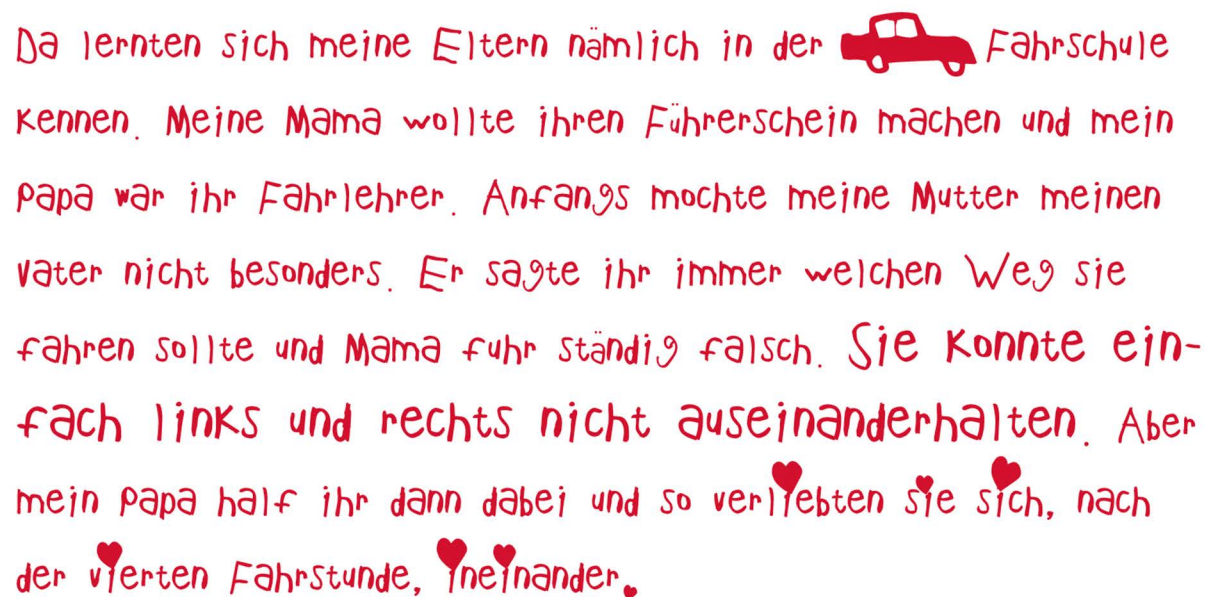 Da lernten sich meine Eltern nämlich in der Fahrschule
kennen. Meine Mama wollte ihren Führerschein machen und mein
Papa war ihr Fahrlehrer. Anfangs mochte meine Mutter meinen
Vater nicht besonders. Er sagte ihr immer welchen Weg sie
fahren sollte und Mama fuhr ständig falsch. Sie konnte ein-
fach links und rechts nicht auseinanderhalten. Aber
mein Papa half ihr dann dabei und so verliebten sie sich, nach
der vierten Fahrstunde, ineinander.